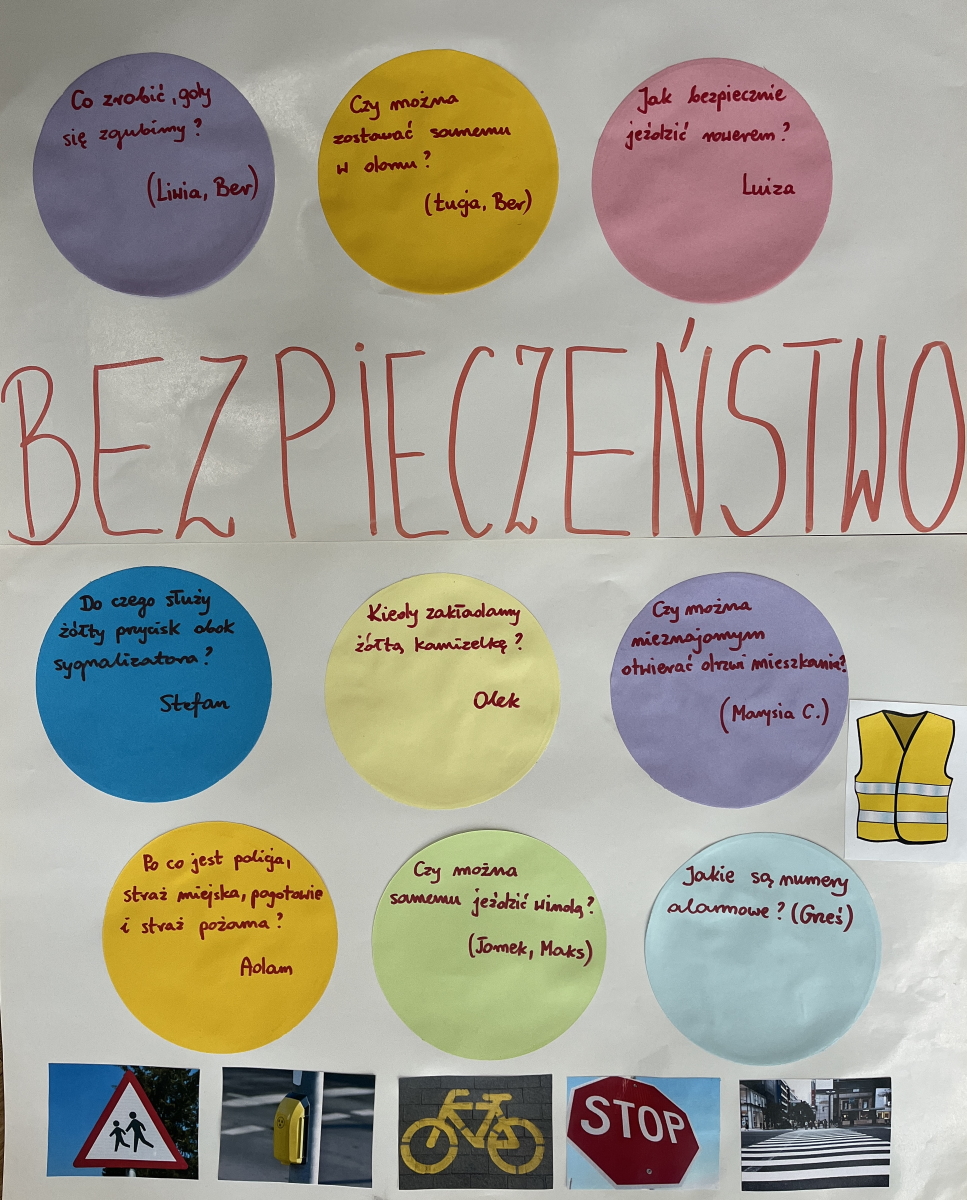 Co zrobić, gdy
się zgubimy?
(Liwia, Ber)
Czy można
zostawać samemu
w domu?
(Łucja, Ber)
Jak bezpiecznie
jeździć rowerem?
Luiza
BEZPIECZEŃSTWO
Do czego służy
żółty przycisk obok
sygnalizatora?
Stefan
Kiedy zakładamy
żółtą kamizelkę?
Olek
Czy można
nieznajomym
otwierać drzwi mieszkania?
(Marysia C.)
Po co jest policja,
straż miejska, pogotowie
i straż pożarna?
Adam
Czy można
samemu jeździć windą?
(Tomek, Maks)
Jakie są numery
alarmowe? (Grześ)
STOP